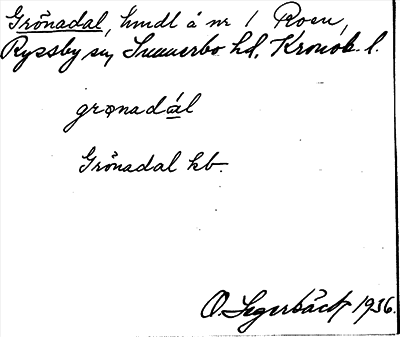 Grönadal, hmdl å nr 1 Roen,
Ryssby sn, Sunnerbo hd, Kronob. l.
grǫnadál
Grönadal kb.
O. Segerbäck 1936.